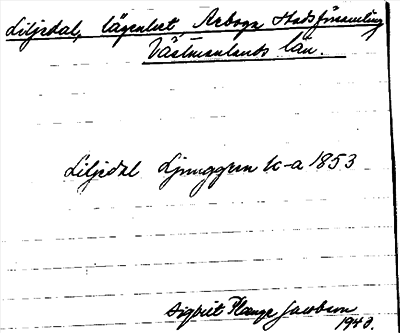 Liljedal, lägenhet Arboga Stadsförsamling
Västmanlands län.
Liljedal Ljunggren k-a 1853
Sigbrit Plange Jacobson
1940.